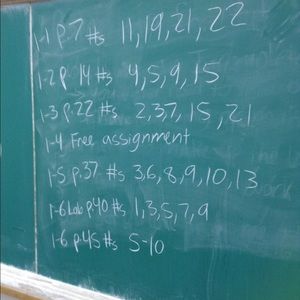 1-1 p.7 #s 11,19,21,22
1-2 p.14 #s 4,5,9,15
1-3 p.22 #s 2,3,7,15,21
1-4 Free assignment
1-5 p.37 #s 3,6,8,9,10,13
1-6 Lab p.40 #s 1,3,5,7,9
1-6 p.45 #s 5-10